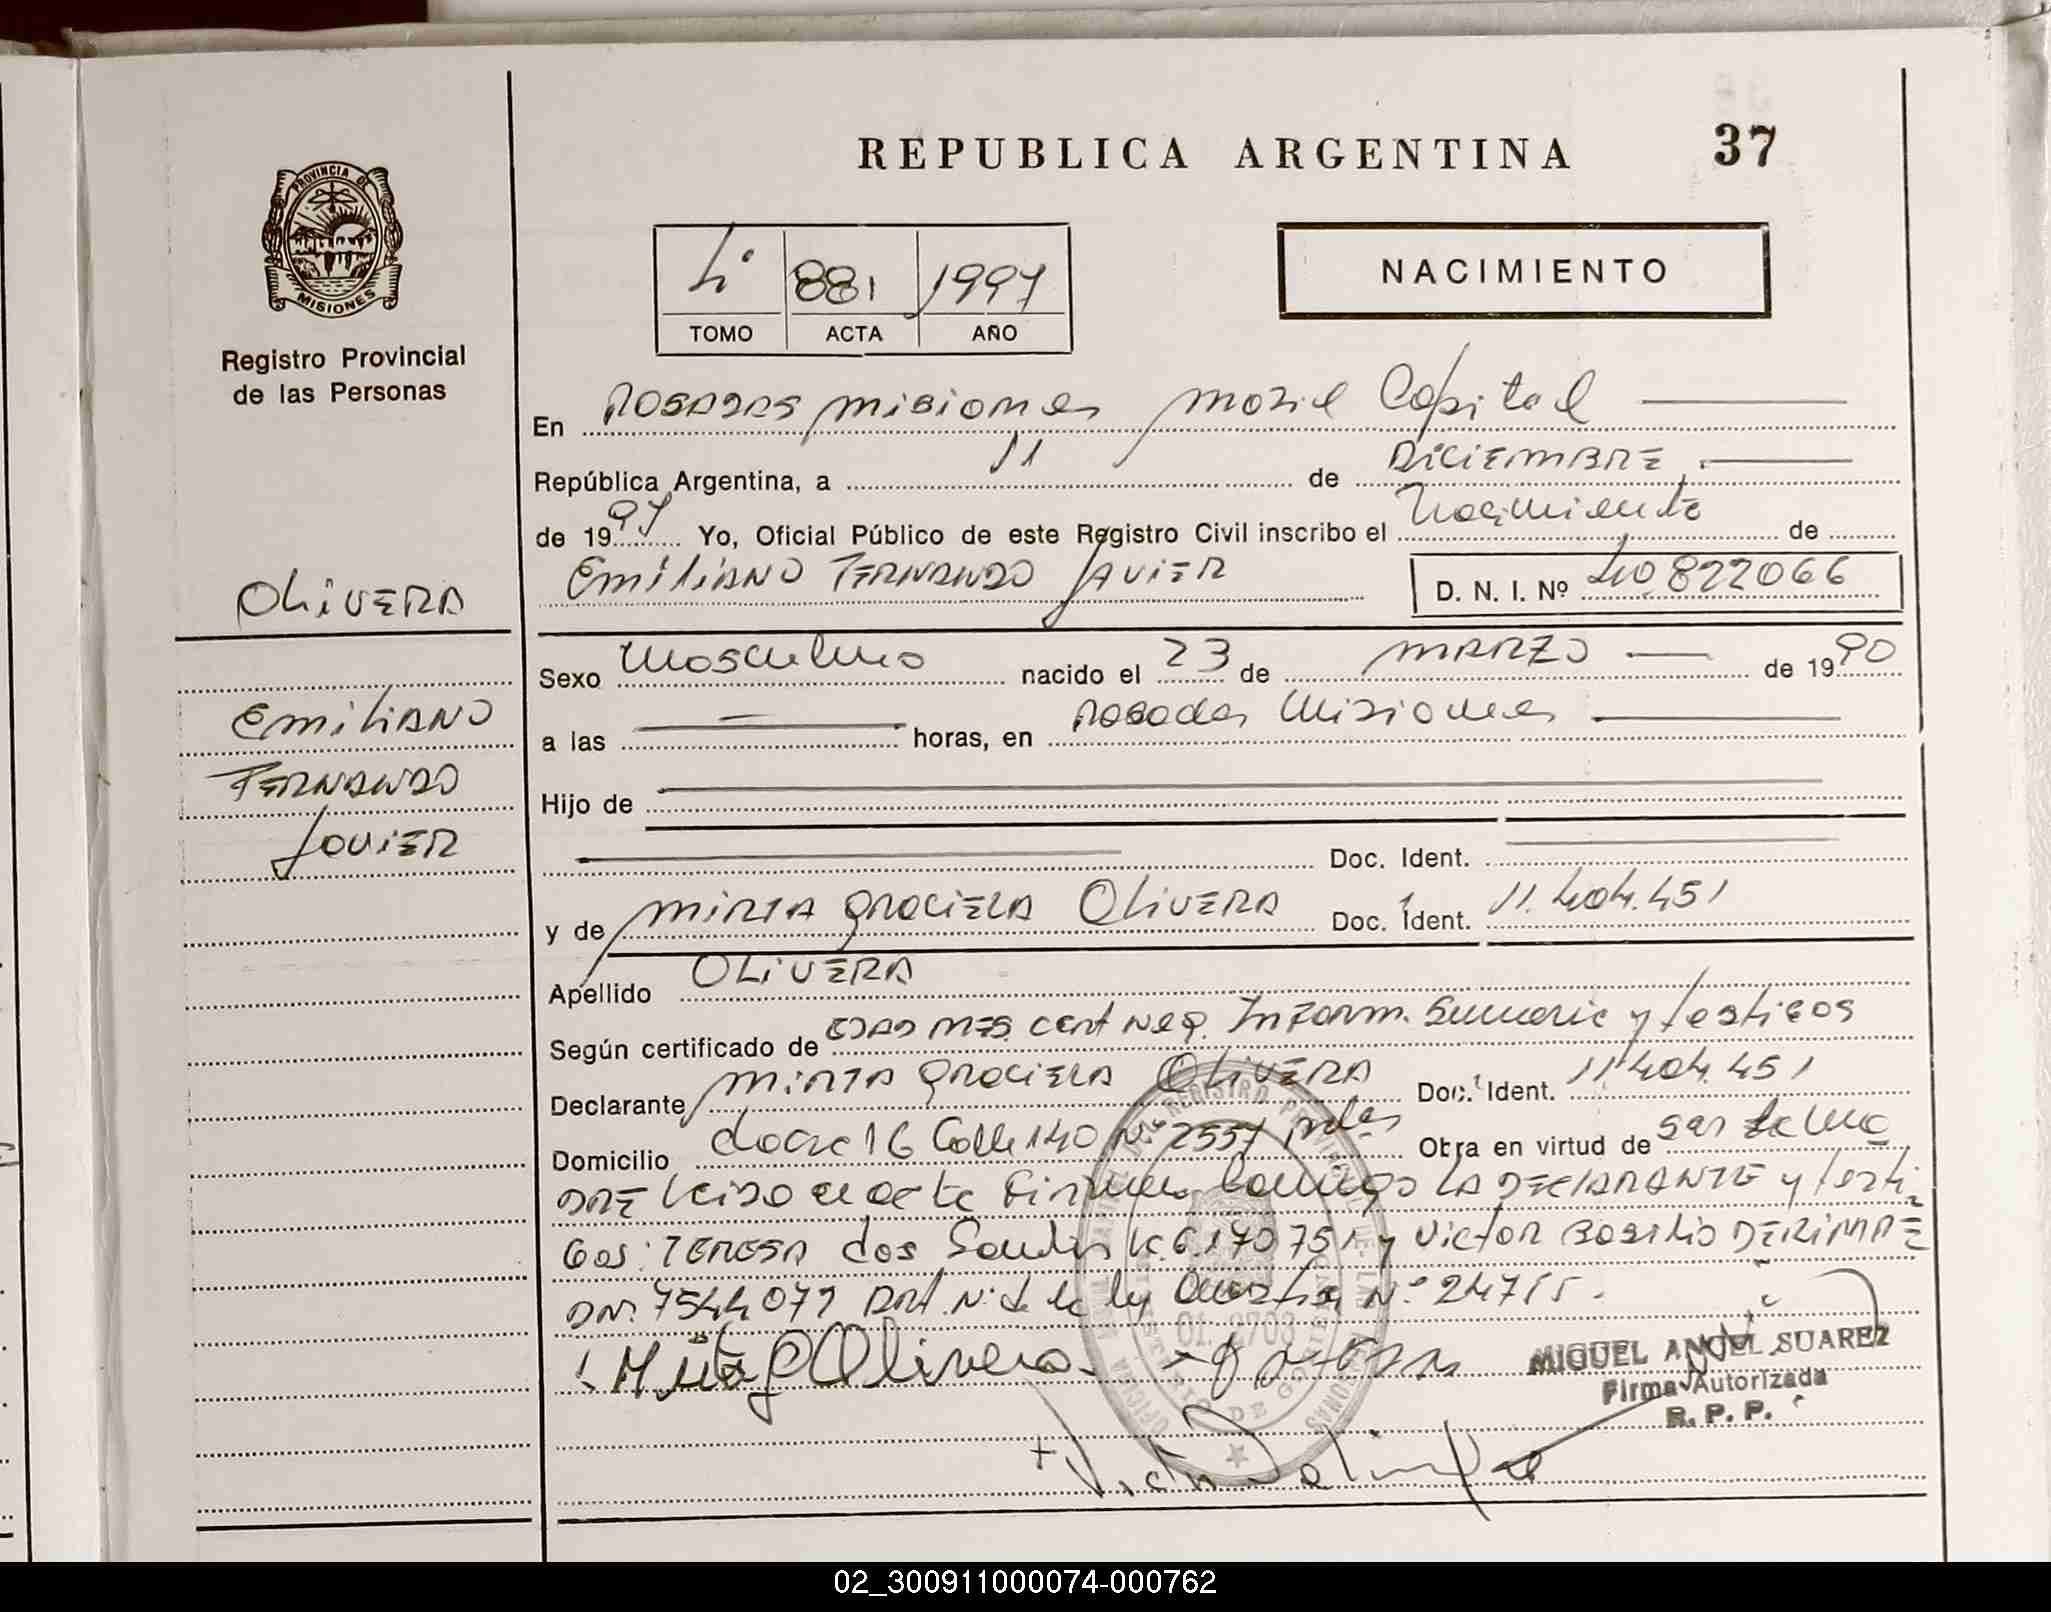 REPUBLICA ARGENTINA 37
PROVINCIA DE
MISIONES
Registro Provincial
de las Personas
4° 881 1997
TOMO ACTA AÑO
NACIMIENTO
En POSADAS MISIONES Capital
República Argentina, a 11 de DICIEMBRE
de 1997 Yo, Oficial Público de este Registro Civil inscribo el Nacimiento de
EMILIANO FERNANDO JAVIER D. N. I. Nº 40822066
OLIVERA
EMILIANO
FERNANDO
JAVIER
Sexo Masculino nacido el 23 de MARZO de 1990
a las horas, en Posadas Misiones
Hijo de
Doc. Ident.
y de MIRTA GRACIELA OLIVERA Doc. Ident. 11.404.451
Apellido OLIVERA
Según certificado de EDAD MED. Cert Neg. Inform. Sumaria y testigos
Declarante MIRTA GRACIELA OLIVERA Doc. Ident. 11404.451
Domicilio chacra 16 Calle 140 Nº 2557 Pdas Obra en virtud de ser la ma
DRE Leido el acta Firman conmigo LA DECLARANTE y testi
gos: TERESA dos Santos 6.170751 y VICTOR BASILIO
7544079 Nº 24715.
Mirta G Olivera
MIGUEL ANGEL SUAREZ
Firma Autorizada
R. P. P.
01. 2703
02_300911000074-000762